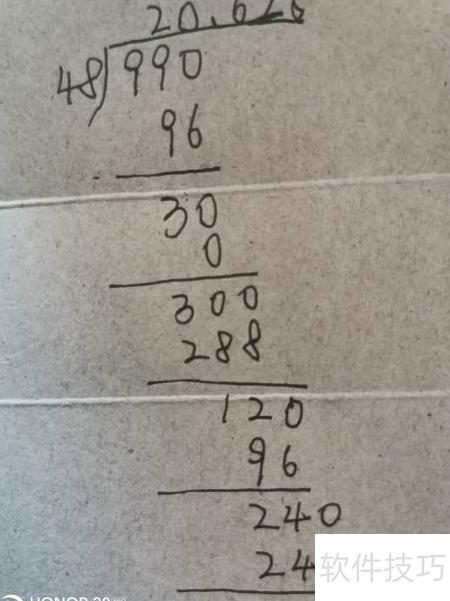 20.625
48)990
96
30
0
300
288
120
96
240
24
软件技巧
HONOR 20